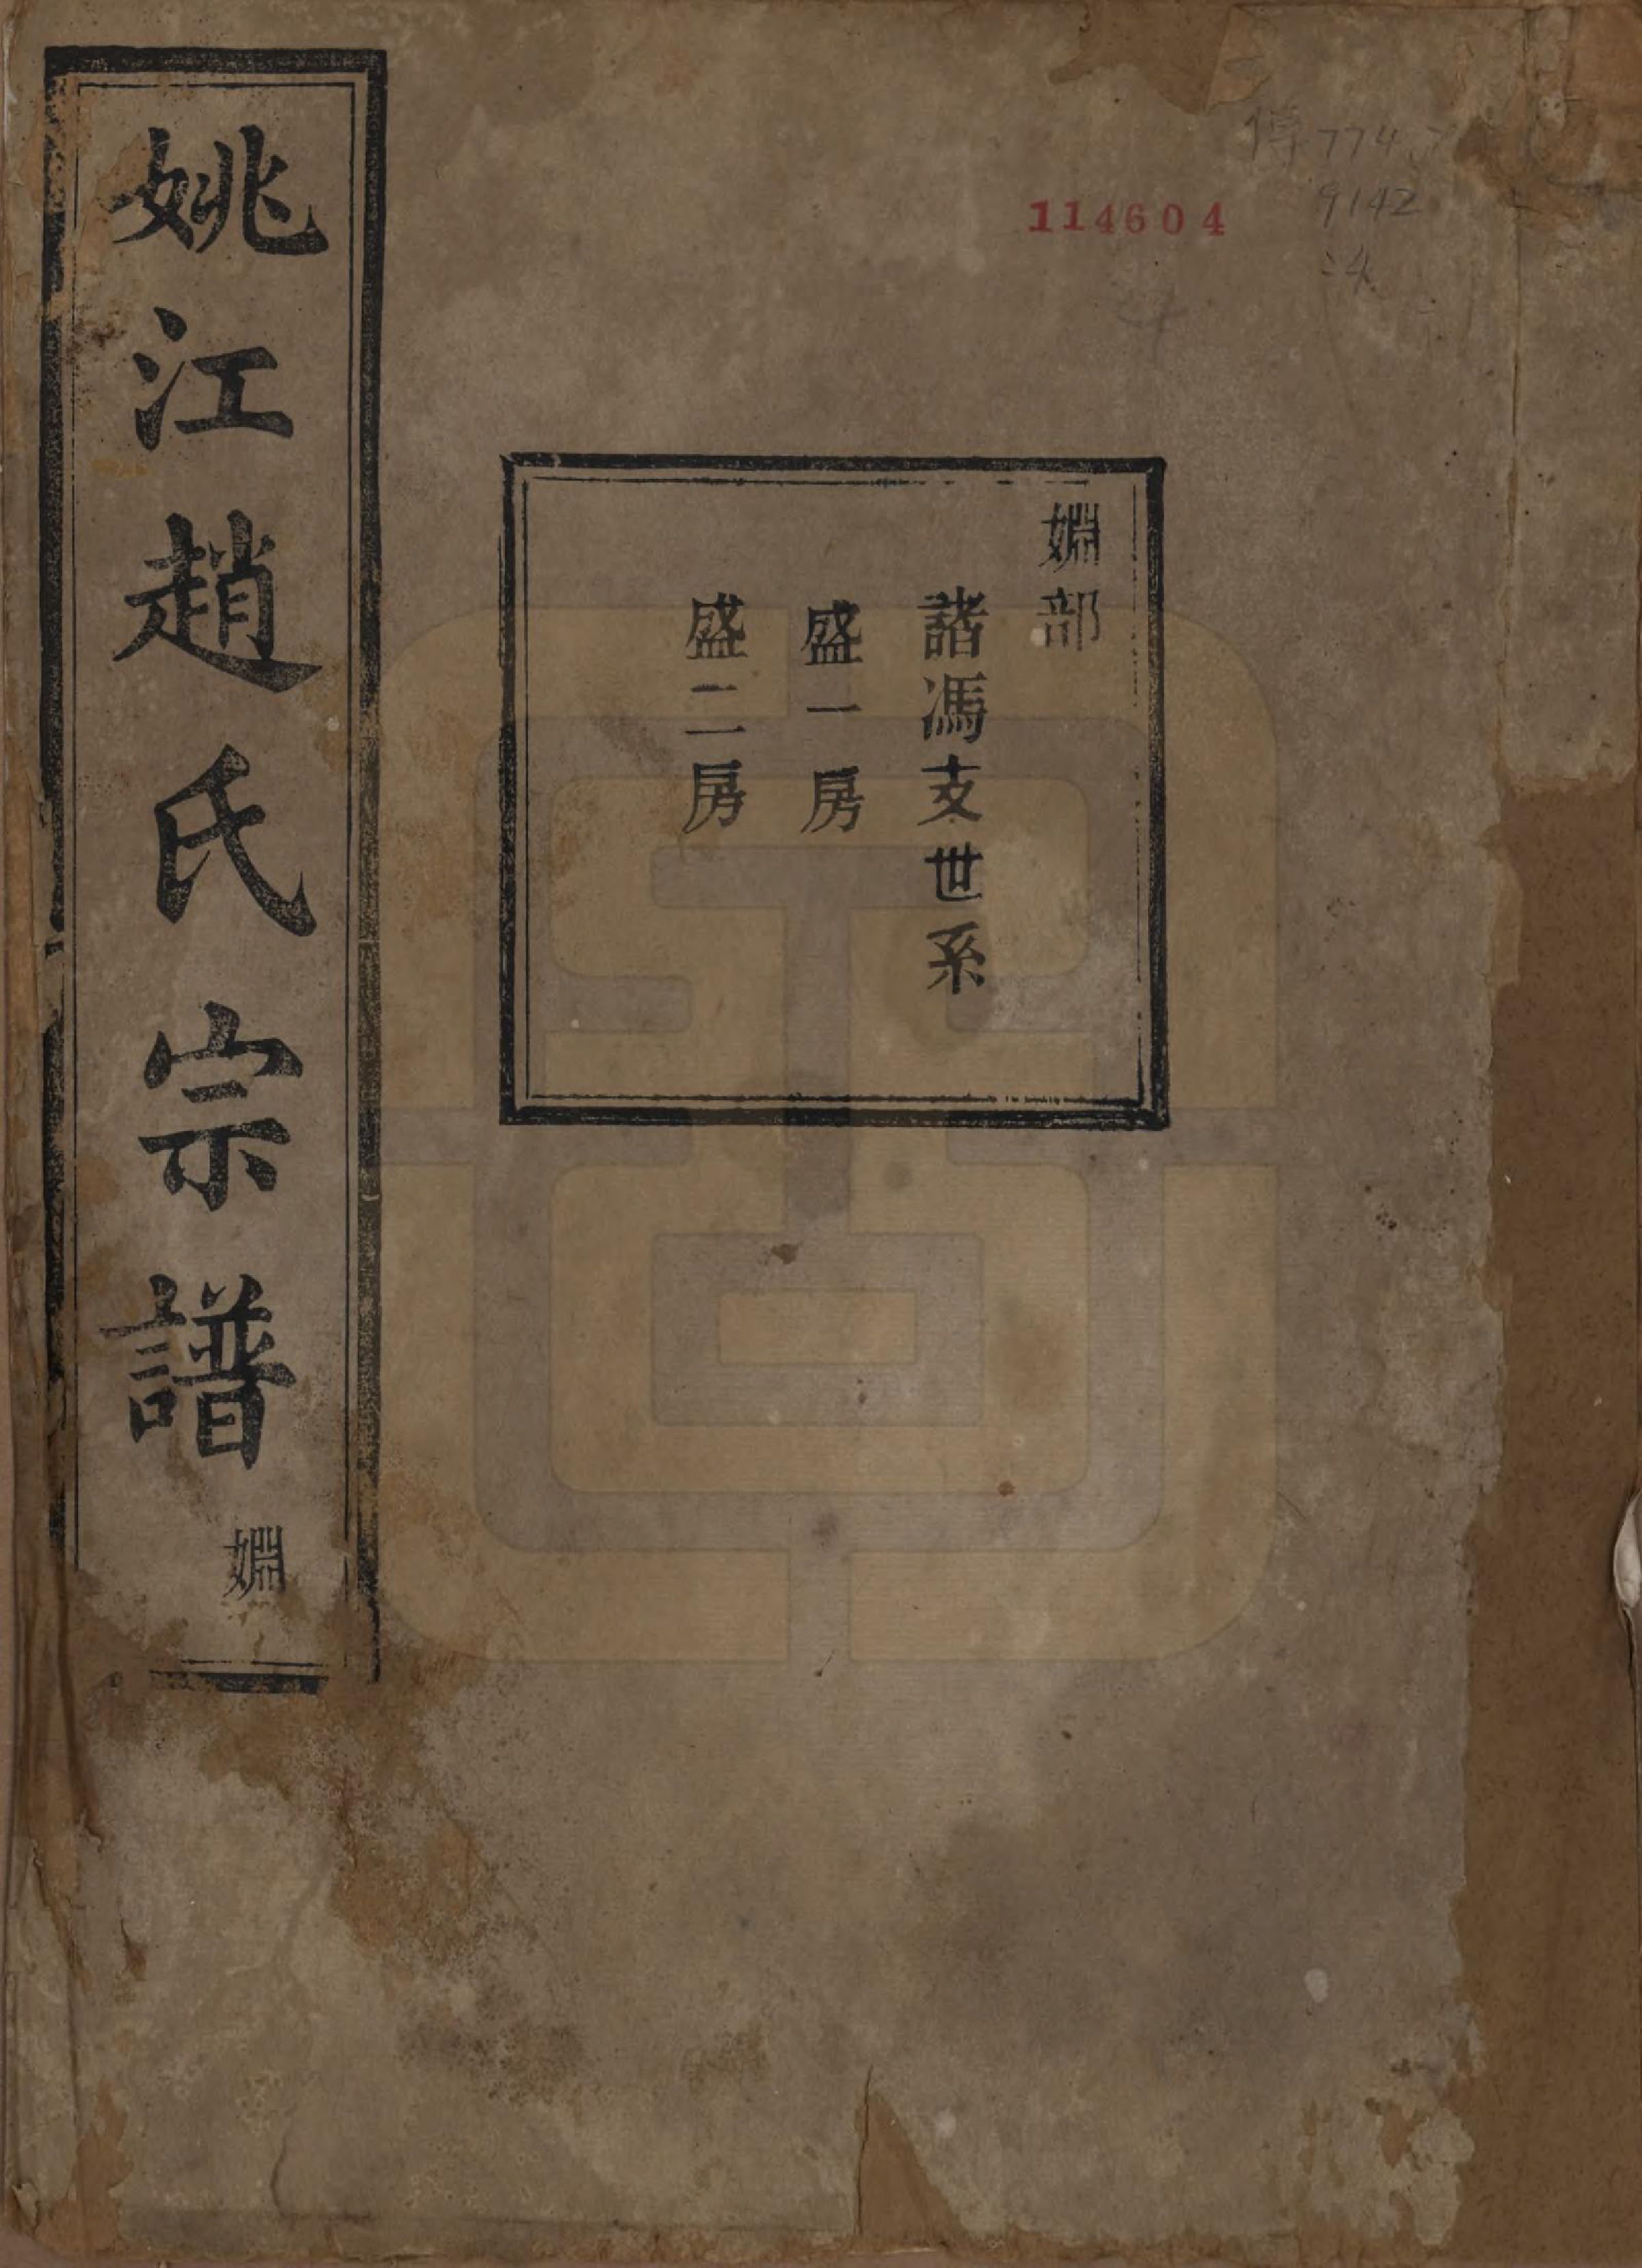 嫻部
諸馮支世系
盛一房
盛二房
姚江趙氏宗譜
嫻
114604
傳774.7
9142
:4